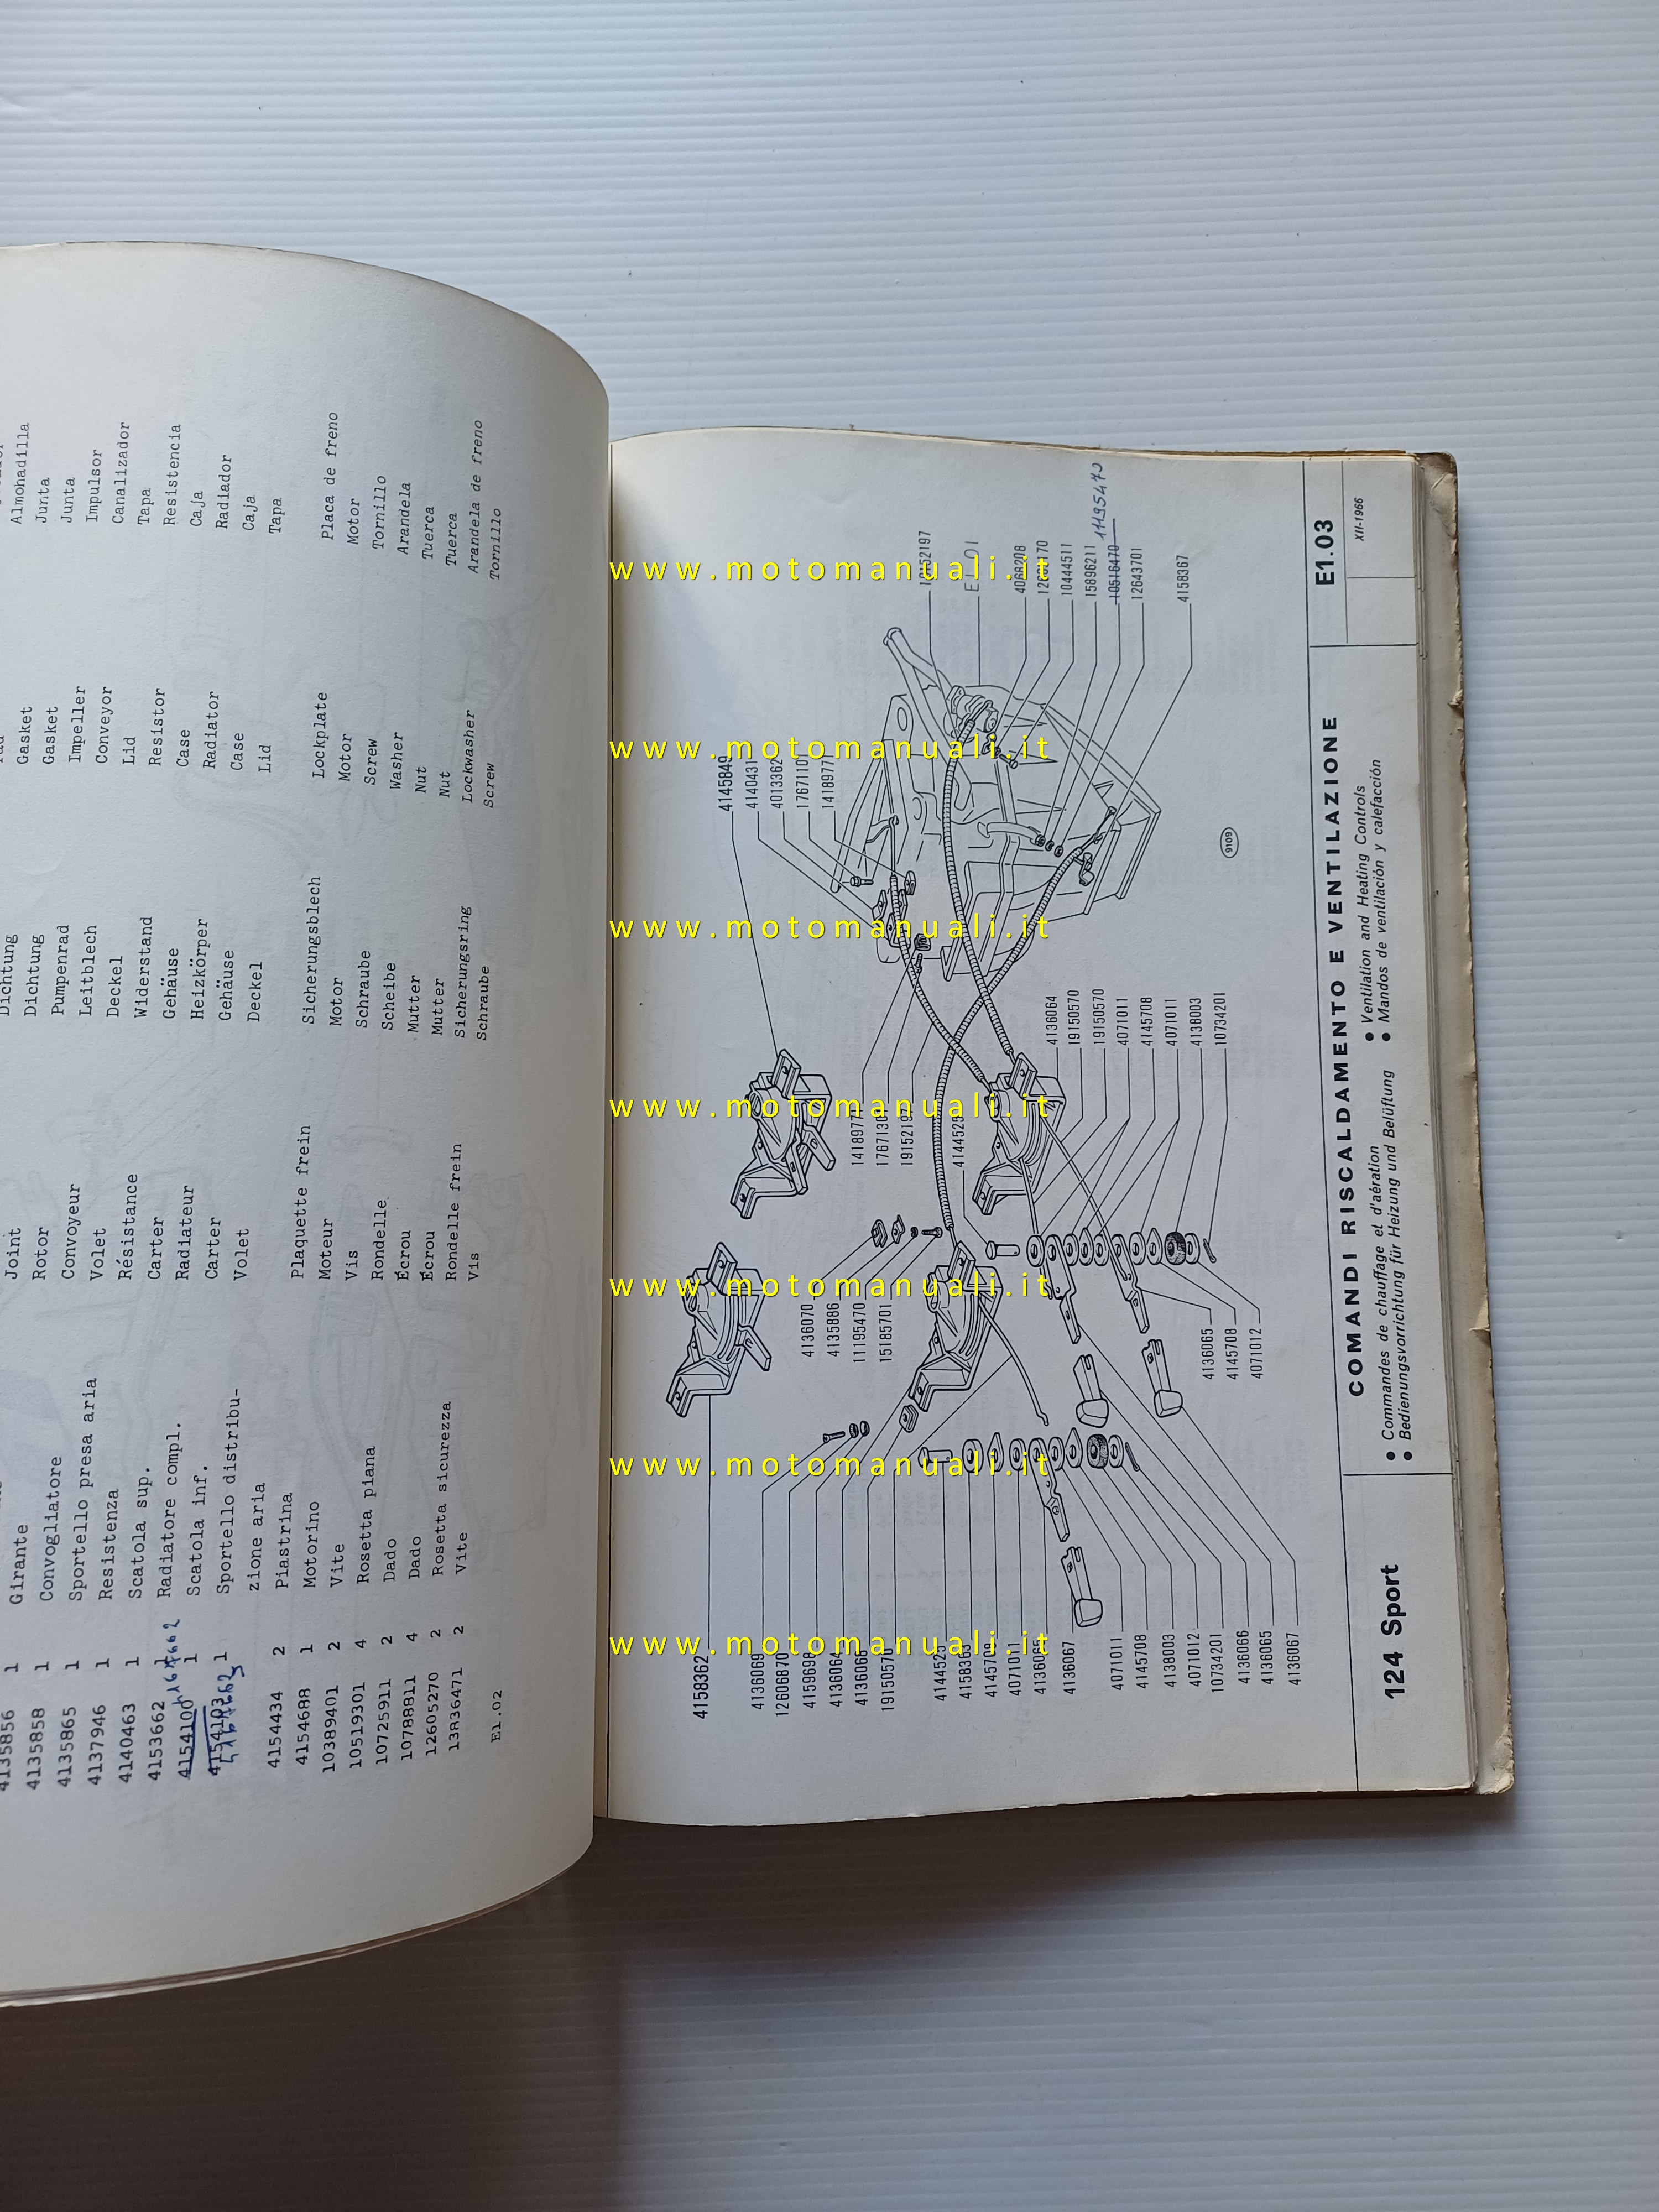 4135856 1
4135858 1 Girante Joint Dichtung Gasket Almohadilla
4135865 1 Convogliatore Rotor Dichtung Gasket Junta
4137946 1 Sportello presa aria Convoyeur Pumpenrad Impeller Junta
4140463 1 Resistenza Volet Leitblech Conveyor Impulsor
4153662 1 Scatola sup. Résistance Deckel Lid Canalizador
4154100 1 Radiatore compl. Carter Widerstand Resistor Tapa
4154103 1 Scatola inf. Radiateur Gehäuse Case Resistencia
Sportello distribu- Carter Heizkörper Radiator Caja
zione aria Volet Gehäuse Case Radiador
Deckel Lid Caja
Tapa
4154434 2 Piastrina Plaquette frein Sicherungsblech Lockplate Placa de freno
4154688 1 Motorino Moteur Motor Motor Motor
10389401 2 Vite Vis Schraube Screw Tornillo
10519301 4 Rosetta piana Rondelle Scheibe Washer Arandela
10725911 2 Dado Écrou Mutter Nut Tuerca
10788811 4 Dado Écrou Mutter Nut Tuerca
12605270 2 Rosetta sicurezza Rondelle frein Sicherungsring Lockwasher Arandela de freno
13836471 2 Vite Vis Schraube Screw Tornillo
E1.02
4158362
4136069
12606870
4159698
4136064
4136066
19150570
4144525
4145708
4071011
4136067
4071011
4145708
4138003
4071012
10734201
4136066
4136065
4136067
4136070
4135886
11195470
15185701
4136065
4145708
4071012
14189771
17671301
19152197
4144525
4136064
19150570
19150570
4071011
4145708
4071011
4138003
10734201
4145849
4140431
4013362
17671101
14189771
19152197
E1.01
4068208
10444511
15896211
10516470
11195470
12643701
4158367
9109
124 Sport
COMANDI RISCALDAMENTO E VENTILAZIONE
● Commandes de chauffage et d'aération ● Ventilation and Heating Controls
● Bedienungsvorrichtung für Heizung und Belüftung ● Mandos de ventilación y calefacción
E1.03
XII-1966
www.motomanuali.it
www.motomanuali.it
www.motomanuali.it
www.motomanuali.it
www.motomanuali.it
www.motomanuali.it
www.motomanuali.it